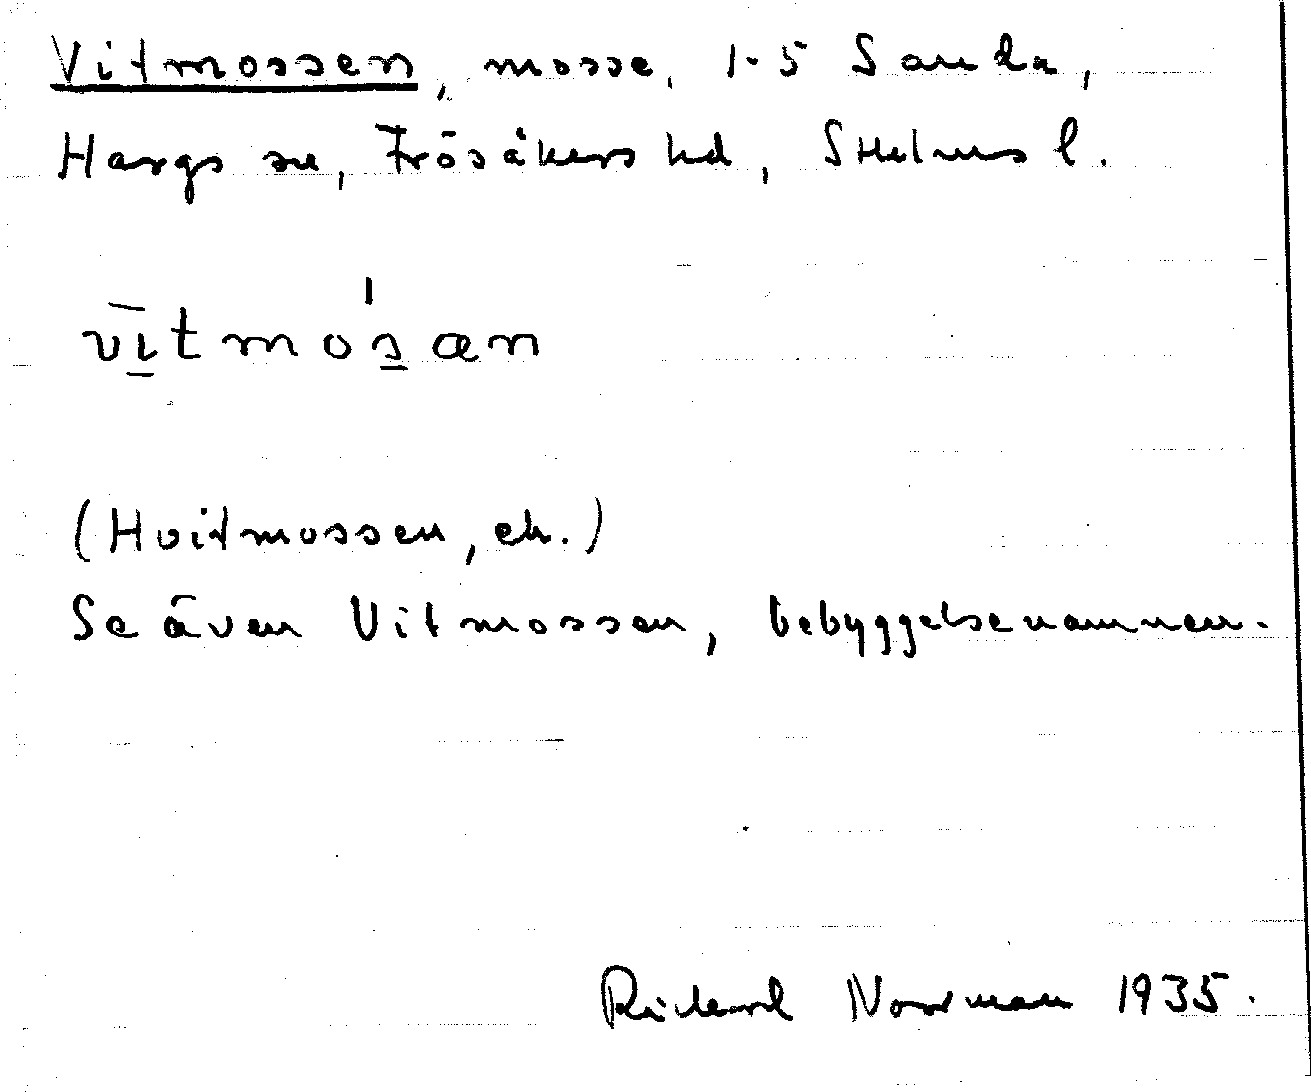 Vitmossen, mosse, 1-5 Sanda,
Hargs sn, Frösåkers hd, Sthlms l.
vi̲tmos̲an
(Hvitmossen, ek.)
Se även Vitmossen, bebyggelsenamnen.
Richard Norrman 1935.